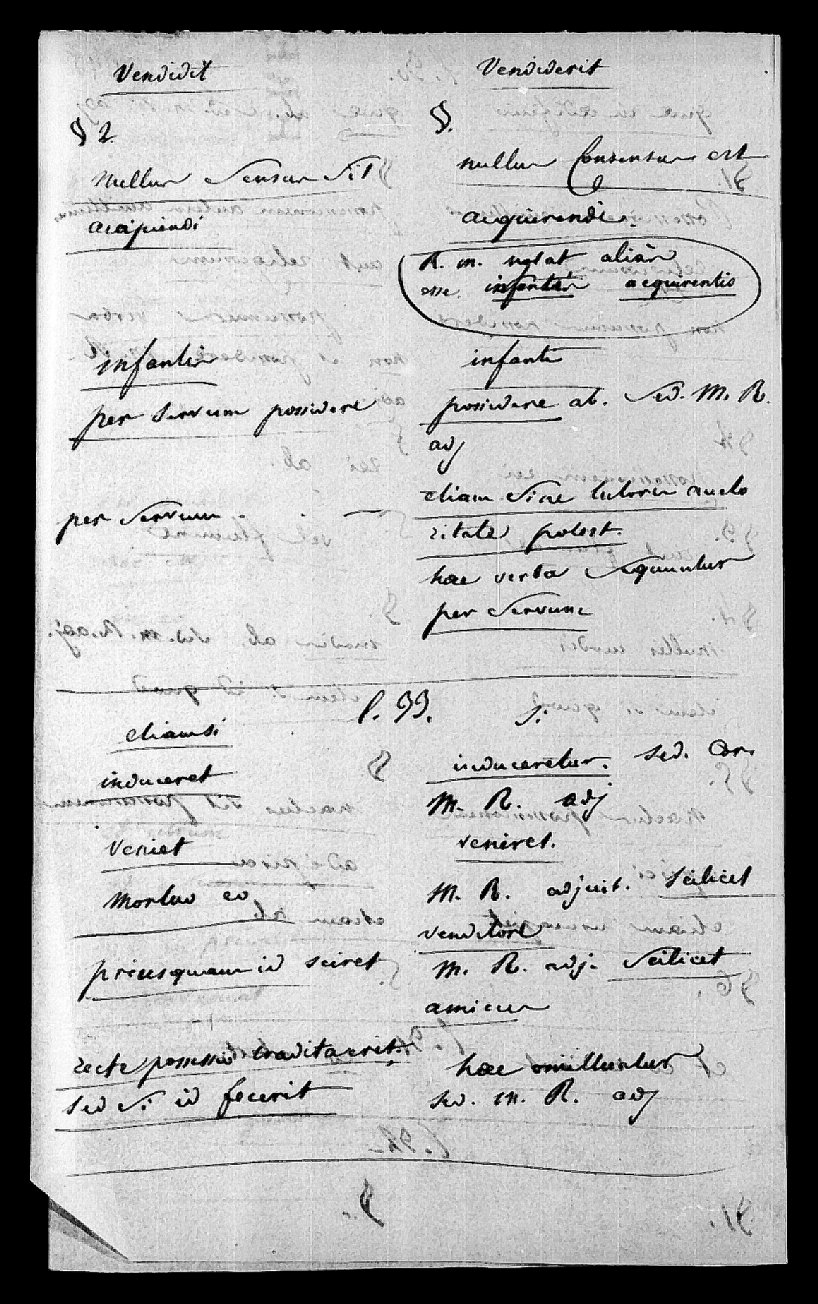 Vendidit
Vendiderit
§ 2.
§.
nullus sensus sit
nullus Consensus est
accipiendi
acquirendi.
R. m. notat aliàs
esse. infantis acquirentis
infantis
infanti
per servum possidere
possidere ab. Sed. M. R.
adj
etiam sine tutoris aucto
per servum —
ritate potest.
hae verba sequuntur
per servum
l. 33.
§.
etiamsi
induceret
induceretur. sed.
M. R. adj
veniet
veniret.
mortuo eo
M. R. adjicit. scilicet
venditore
priusquam id sciret
M. R. adj. scilicet
amicus
recte possessio tradita erit.
hae omittuntur
sed si id fecerit
sed. m. R. adj